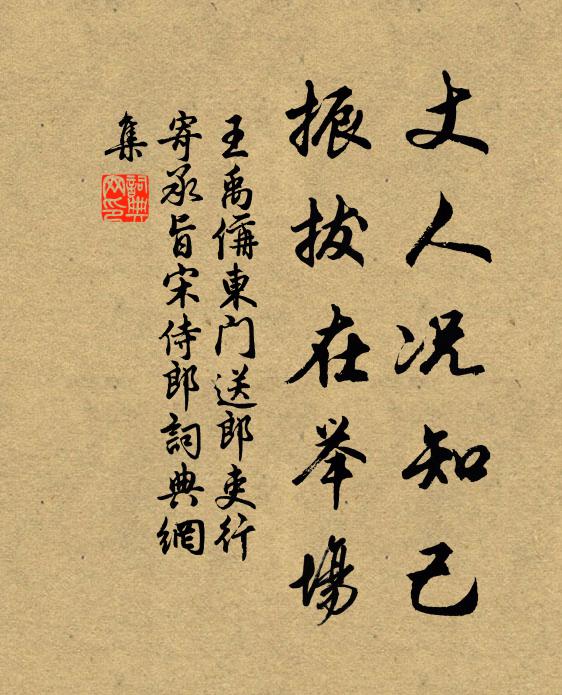 丈人况知己
振拔在举場
王禹偁東门送郎吏行
寄承旨宋侍郎詞典網
集
詞典
网印